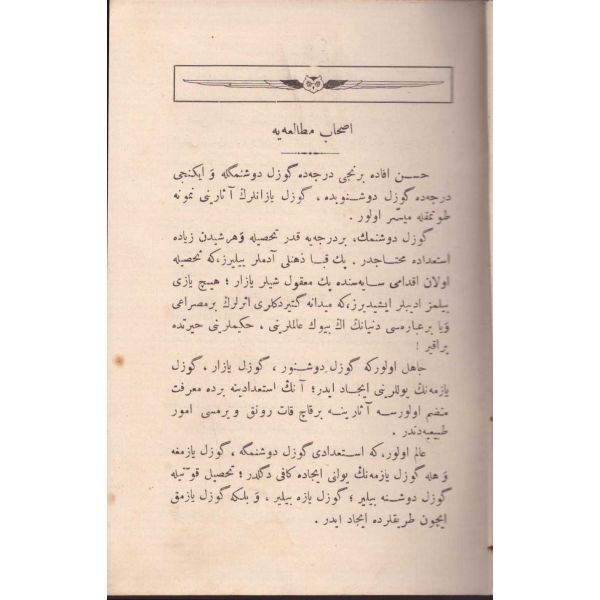 اصحاب مطالعه‌یه
حسن افاده برنجی درجه‌ده گوزل دوشنمگله وَ ایکنجی
درجه‌ده گوزل دوشنوبده ، گوزل یازانلرك آثارینی نمونه
طوتمقله میسّر اولور .
گوزل دوشنمك ، بر درجه‌یه قدر تحصیله وَ هر شیدن زیاده
استعداده محتاجدر . پك قبا ذهنلی آدملر بیلیرز، که تحصیله
اولان اقدامی سایه‌سنده پك معقول شیلر یازار ؛ هیچ یازی
بیلمز ادیبلر ایشیدیرز، که میدانه گتیردکلری اثرلرك بر مصراعی
وَ یا بر عباره‌سی دنیانك اك بیوك عالملرینی ، حکیملرینی حیرتده
براقیر !
جاهل اولور که گوزل دوشنور ، گوزل یازار ، گوزل
یازمه‌نك یوللرینی ایجاد ایدر ؛ آنك استعدادینه برده معرفت
منضم اولورسه آثارینه بر قاچ قات رونق ویرمسی امور
طبیعیه‌دندر .
عالم اولور، که استعدادی گوزل دوشنمگه ، گوزل یازمغه
وَ هله گوزل یازمه‌نك یولنی ایجاده کافی دگلدر ؛ تحصیل قوّتیله
گوزل دوشنه بیلیر ؛ گوزل یازه بیلیر ، وَ بلکه گوزل یازمق
ایچون طریقلرده ایجاد ایدر .